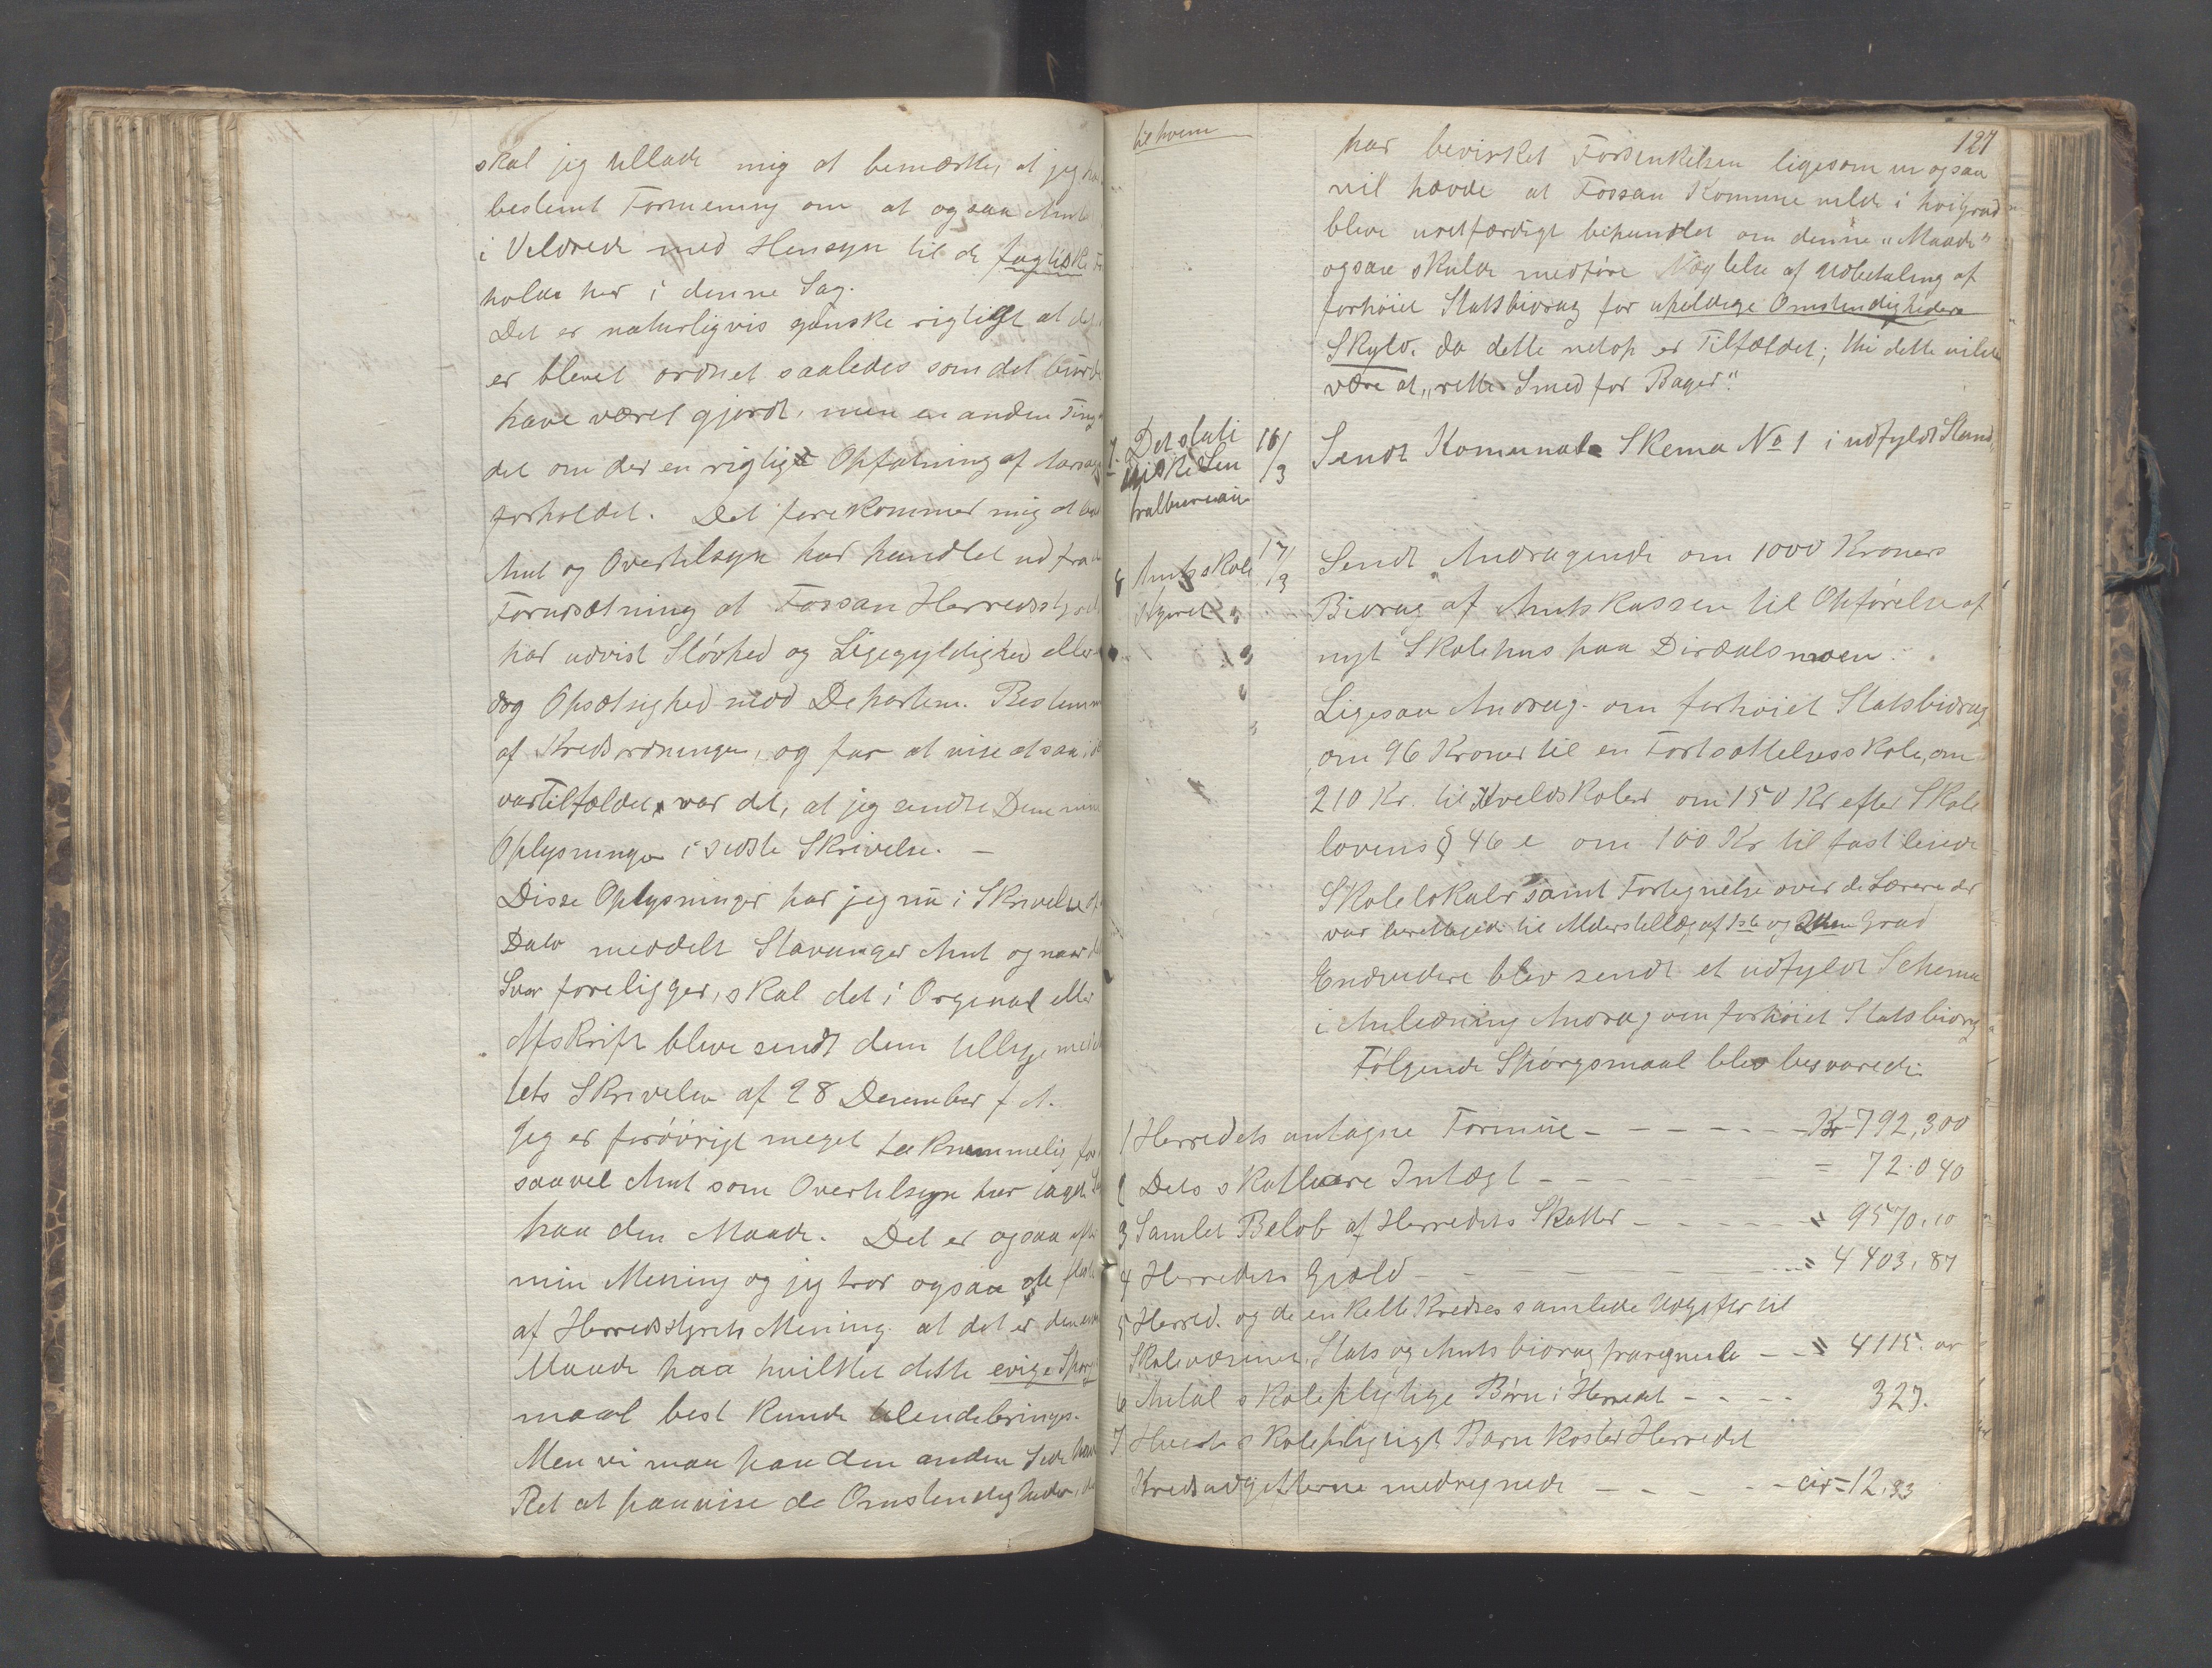 skal jeg tillade mig at bemærke, at jeg har
bestemt Formening om at ogsaa Amtet
i Veldrede med Hensyn til de fagtiske For
holde her i denne Sag.
Det er naturligvis ganske rigtigt at det
er blevet ordnet saaledes som det burde
have været gjordt, men en anden Ting
det om der en rigtigt Opfatning af Aarsags
forholdet. Det forekommer mig at
Amt og Overtilsyn har handlet ud fra
Forudsætning at Fossan Herredsstyre
har udvist Sløvhed og Ligegyldighed eller
dog Opsætsighed mod Departem. Bestemm
af Kredsordningen, og for at vise at saa i
var Tilfældet, var det, at jeg sendte Dem mine
Oplysninger i sidste Skrivelse. —
Disse Oplysninger har jeg nu i Skrivelse af
Dato meddelt Stavanger Amt og naar
Svar foreligger, skal det i Orginal eller
Afskrift blive sendt dem tillige med
tets Skrivelse af 28 Desember f A.
Jeg er forøvrigt meget taknemmelig for
saavel Amt som Overtilsyn har taget
paa den Maade. Det er ogsaa efter
min Mening og jeg tror ogsaa de fleste
af Herredsstyrets Mening at det er den eneste
Maade paa hvilket dette evige Spørgs
maal best kunde tilendebringes.
Men vi maa paa den anden Side have
Ret at paavise de Omstendigheder, der
til hvem
127
har bevirket Forsinkelsen ligesom vi ogsaa
vil hævde at Fossan Komune vilde i høi grad
blive uretfærdigt behandlet om denne "Maade"
ogsaa skulde medføre Nægtelse af Udbetaling af
forhøiet Statsbidrag for uheldige Omstendigheders
Skyld. da dette netop er Tilfældet; thi dette vilde
være at "rette Smed for Bager".
7. Det stati
stiske Sen
tralbureau
16/
/3
Sendt Komunale Skema No 1 i udfyldt Stand,
8 Amtsskole
styret
17/
/3
Sendt Andragende om 1000 Kroners
Bidrag af Amtskassen til Opførelse af
nyt Skolehus paa Dirdalsmoen.
Ligesaa Andrag. om forhøiet Statsbidrag
om 96 Kroner til en Fortsættelsesskole, om
210 Kr. til Kveldskoler om 150 Kr efter Skole
lovens § 46 e om 100 Kr til fast leiede
Skolelokaler samt Fortegnelse over de Lærere der
var berettigede til Alderstillæg af 1ste og 2den Grad
Endvidere blev sendt et udfyldt Schema
i Anledning Andrag om forhøiet Statsbidrag
Følgende Spørgsmaal blev besvarede:
1 Herredets antagne Formue — Kr 792,300
2 Dets skatbare Intægt — = 72.040
3 Samlet Beløb af Herredets Skatter — " 9570,10
4 Herredets Gjæld — = 4403,87
5 Herred. og de enkelte Kredses samlede Udgifter til
Skolevæsenet, Stats og Amtsbidrag fraregnede — " 4115.
6 Antal skolepligtige Børn i Herredet — 327.
7 Hvert skolepligtigt Barn koster Herredet
Kredsudgifterne medregnede — cir = 12,33